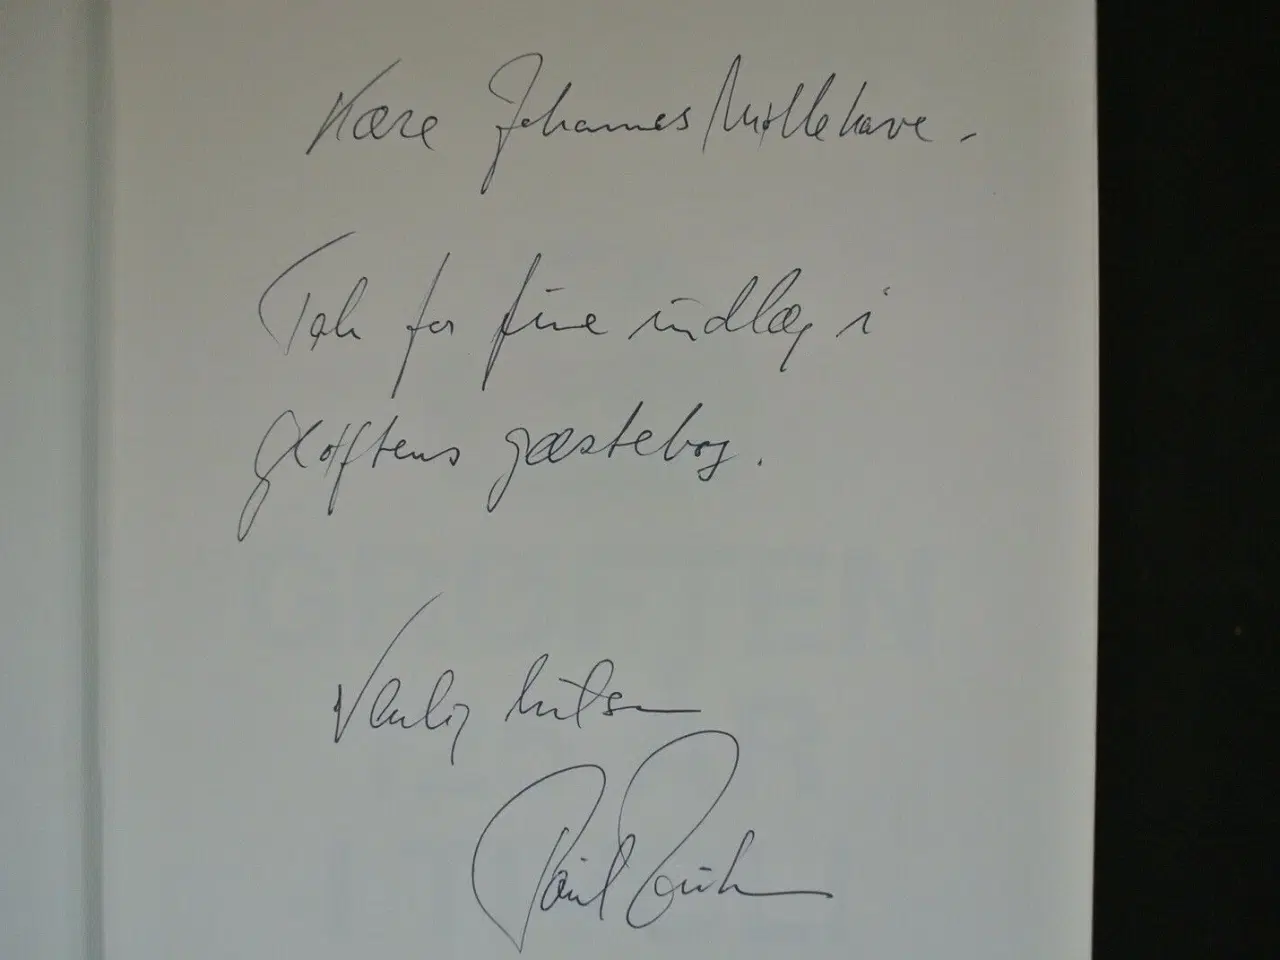 Kære Johannes Møllehave -
Tak for fine indlæg i
Gløftens gæstebog.
Venlig hilsen
Poul